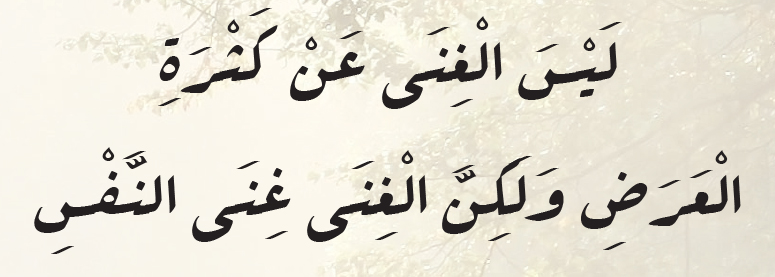 لَيْسَ الْغِنَى عَنْ كَثْرَةِ
الْعَرَضِ وَلَكِنَّ الْغِنَى غِنَى النَّفْسِ